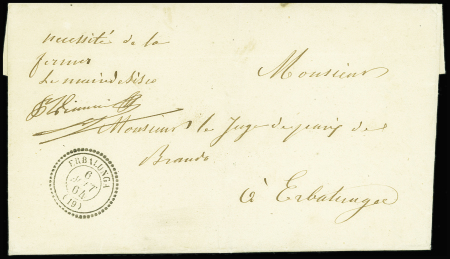 nécessité de la
fermer
Le maire de Sisco
Monsieur
Monsieur le Juge de paix de
Brando
à Erbalunga
ERBALUNGA
6
64
(19)